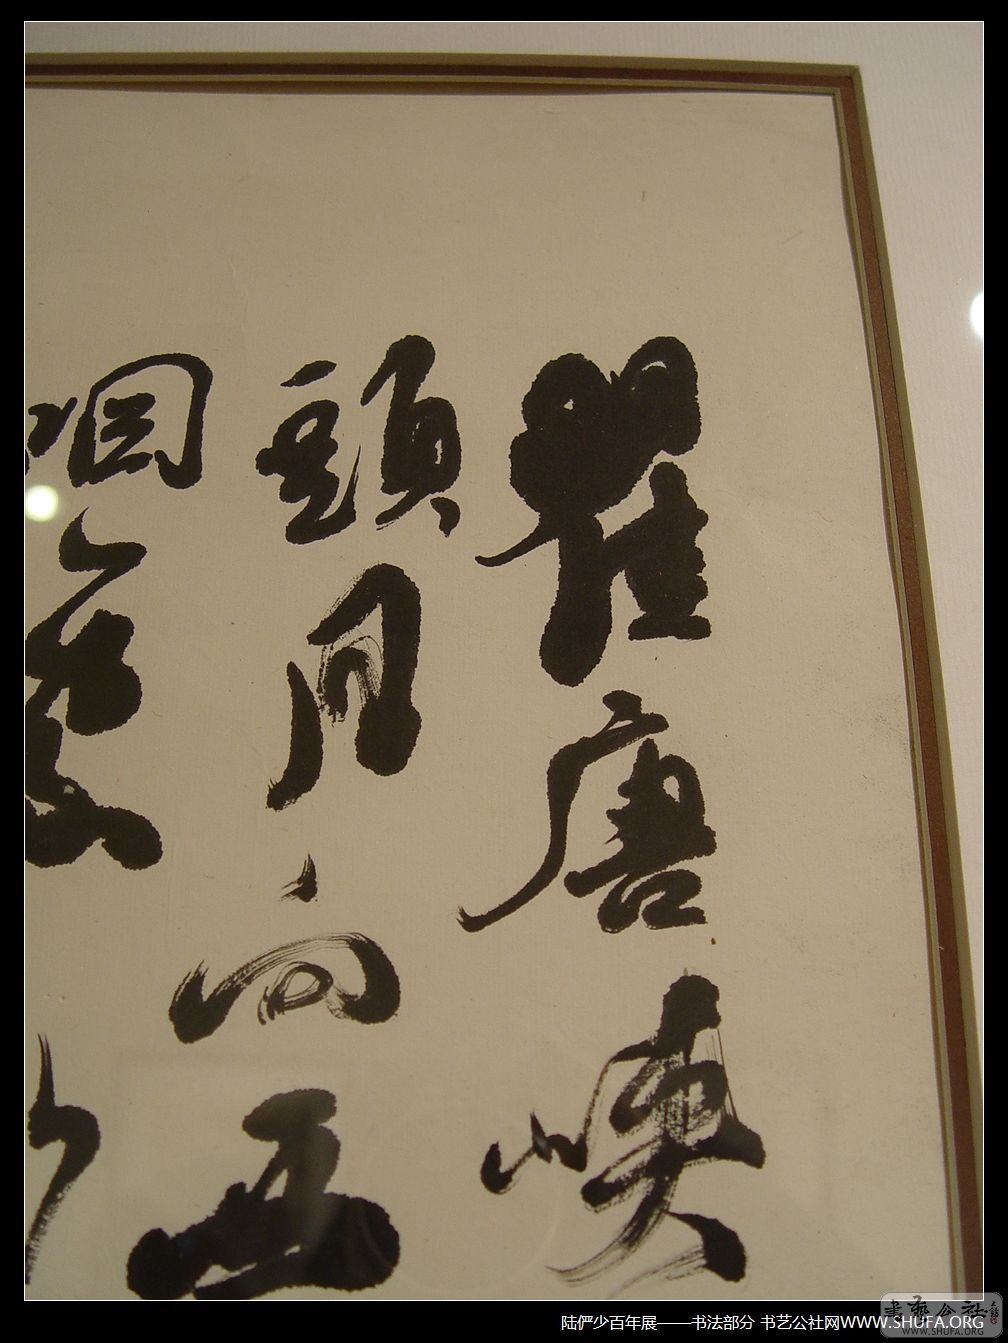 瞿唐峽
頭月向西
咽處
陆俨少百年展——书法部分 书艺公社网WWW.SHUFA.ORG
書藝公社
WWW.SHUFA.ORG